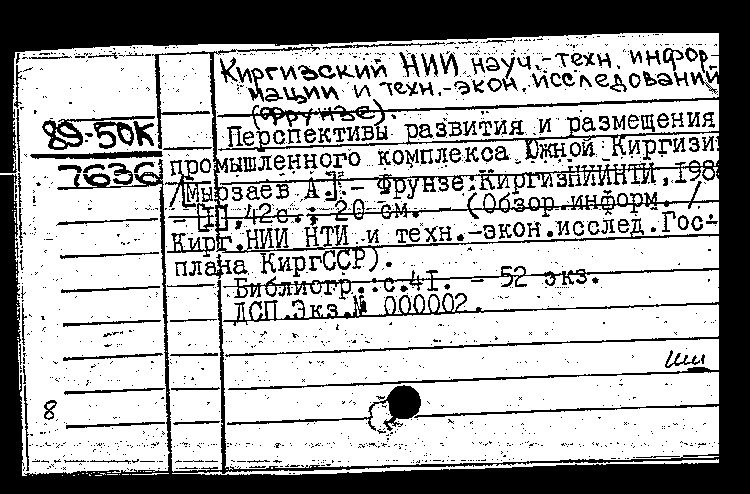 Киргизский НИИ науч.-техн. инфор-
мации и техн.-экон. исследований
(Фрунзе).
89-50К
7636
Перспективы развития и размещения
промышленного комплекса Южной Киргизии
/[Мырзаев А.]. - Фрунзе:КиргизНИИНТИ,1988
- [I],42с.; 20 см. - (Обзор.информ. /
Кирг.НИИ НТИ и техн.-экон.исслед.Гос-
плана КиргССР).
Библиогр.:с.4I. - 52 экз.
ДСП.Экз.№ 000002.
8